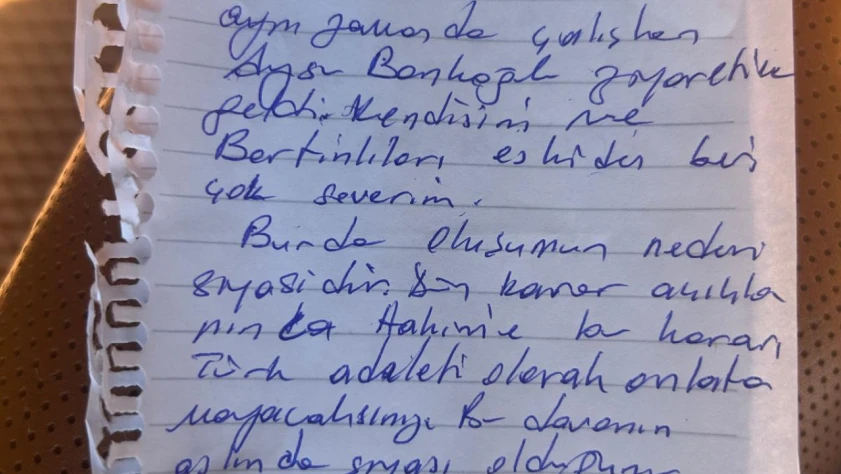 aynı zamanda çalışkan
Aysu Bankoğlu ziyaretime
geldi. Kendisini ve
Bartınlıları eskiden beri
çok severim.
Burda oluşumun nedeni
siyasidir. Son karar açıkla
nınca Hakime bu kararı
Türk adaleti olarak anlata
mayacaksınız. Bu davanın
aslında siyasi olduğunu